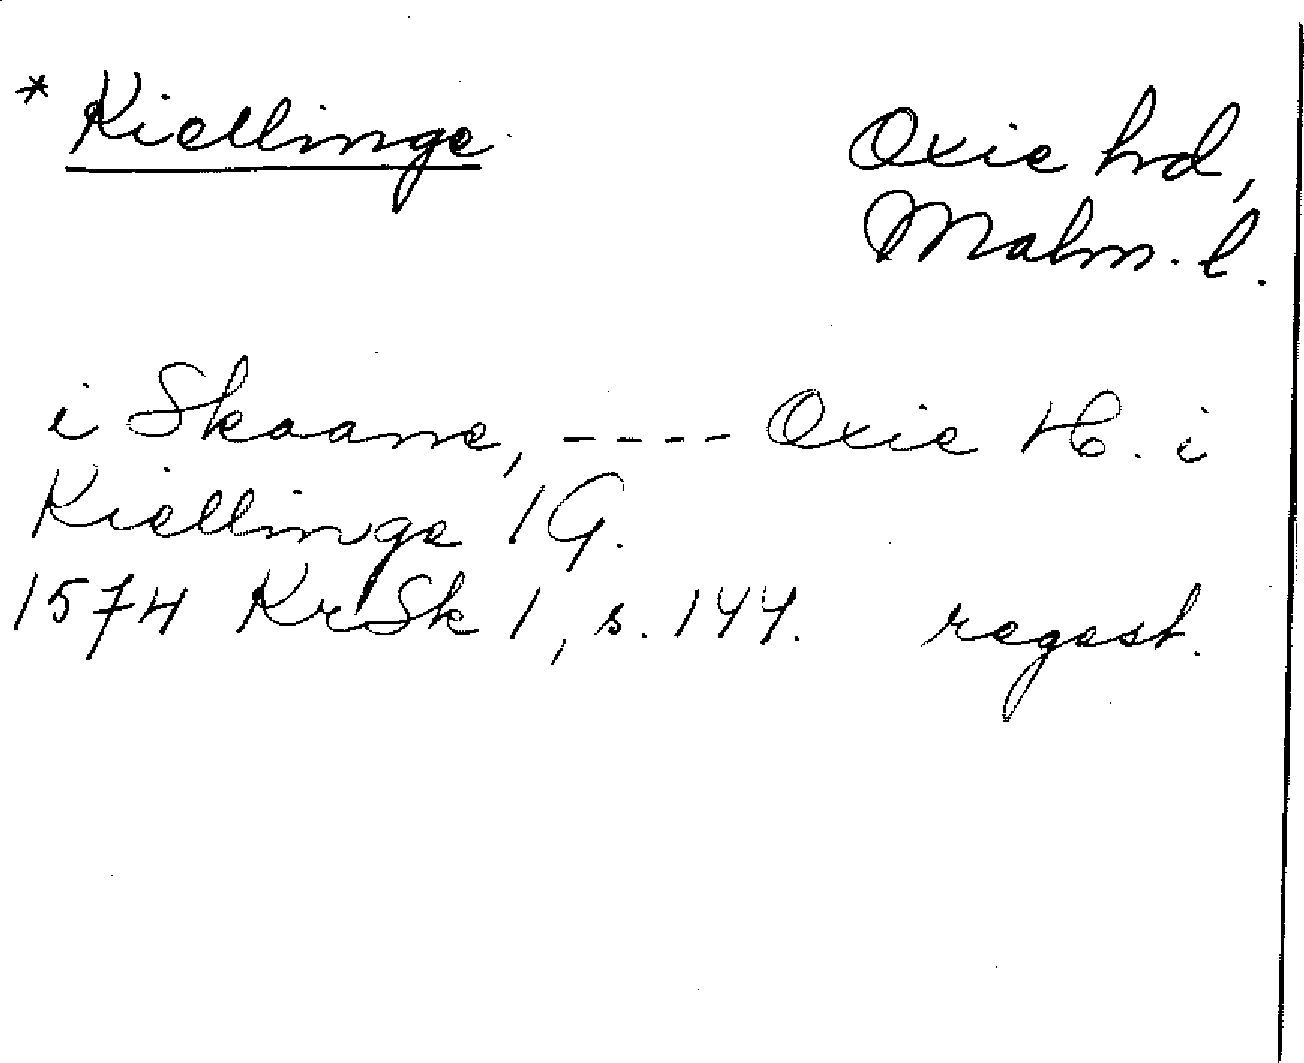 * Kiellinge
Oxie hd,
Malm. l.
i Skaane, ---- Oxie H. i
Kiellinge 1 G.
1574 KrSk 1, s. 144. regest.